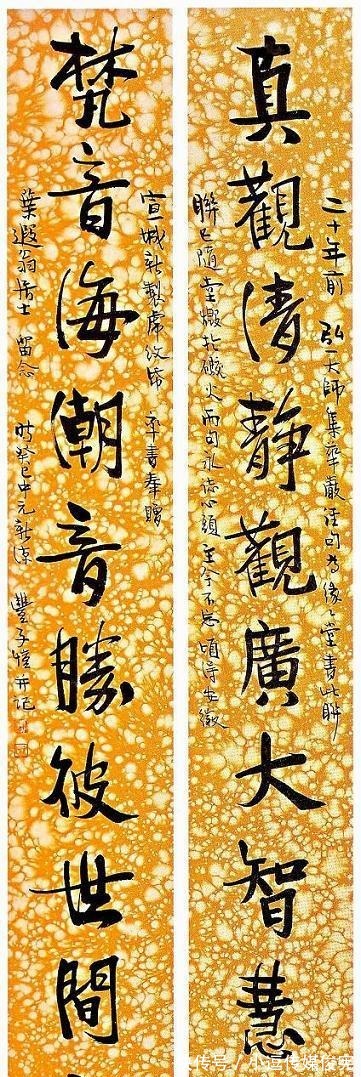 二十年前 弘一大師集華嚴經句為緣〻堂書此聯
真觀清靜觀廣大智慧
聯已隨堂燬於礮火而句永心頭至今不忘頃得安徽
宣城新製虎紋箋 率書奉贈
梵音海潮音勝彼世間
葉遐翁居士 留念 時癸巳中元新涼 豐子愷并記